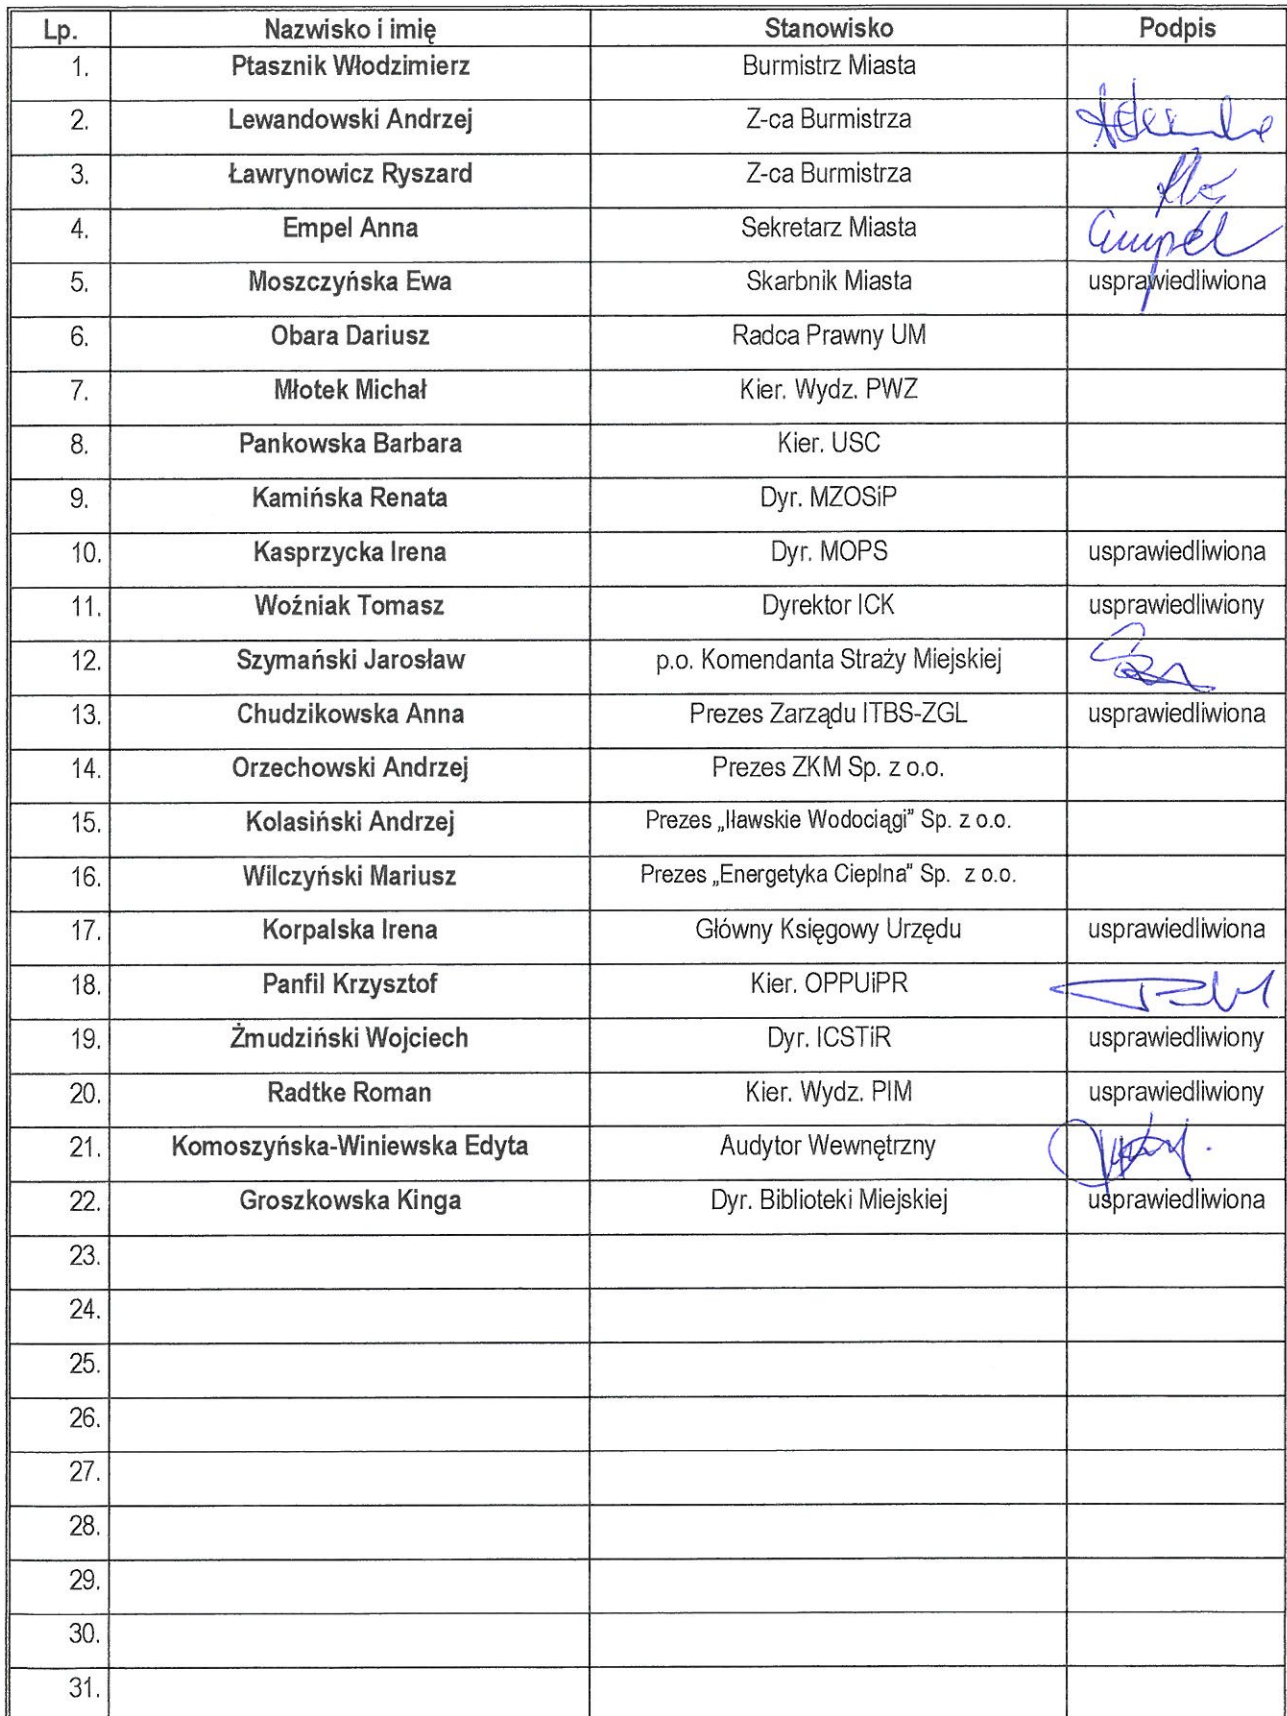 Lp. Nazwisko i imię Stanowisko Podpis
1. Ptasznik Włodzimierz Burmistrz Miasta
2. Lewandowski Andrzej Z-ca Burmistrza
3. Ławrynowicz Ryszard Z-ca Burmistrza
4. Empel Anna Sekretarz Miasta Empel
5. Moszczyńska Ewa Skarbnik Miasta usprawiedliwiona
6. Obara Dariusz Radca Prawny UM
7. Młotek Michał Kier. Wydz. PWZ
8. Pankowska Barbara Kier. USC
9. Kamińska Renata Dyr. MZOSiP
10. Kasprzycka Irena Dyr. MOPS usprawiedliwiona
11. Woźniak Tomasz Dyrektor ICK usprawiedliwiony
12. Szymański Jarosław p.o. Komendanta Straży Miejskiej
13. Chudzikowska Anna Prezes Zarządu ITBS-ZGL usprawiedliwiona
14. Orzechowski Andrzej Prezes ZKM Sp. z o.o.
15. Kolasiński Andrzej Prezes „Iławskie Wodociągi” Sp. z o.o.
16. Wilczyński Mariusz Prezes „Energetyka Cieplna” Sp. z o.o.
17. Korpalska Irena Główny Księgowy Urzędu usprawiedliwiona
18. Panfil Krzysztof Kier. OPPUiPR
19. Żmudziński Wojciech Dyr. ICSTiR usprawiedliwiony
20. Radtke Roman Kier. Wydz. PIM usprawiedliwiony
21. Komoszyńska-Winiewska Edyta Audytor Wewnętrzny
22. Groszkowska Kinga Dyr. Biblioteki Miejskiej usprawiedliwiona
23.
24.
25.
26.
27.
28.
29.
30.
31.